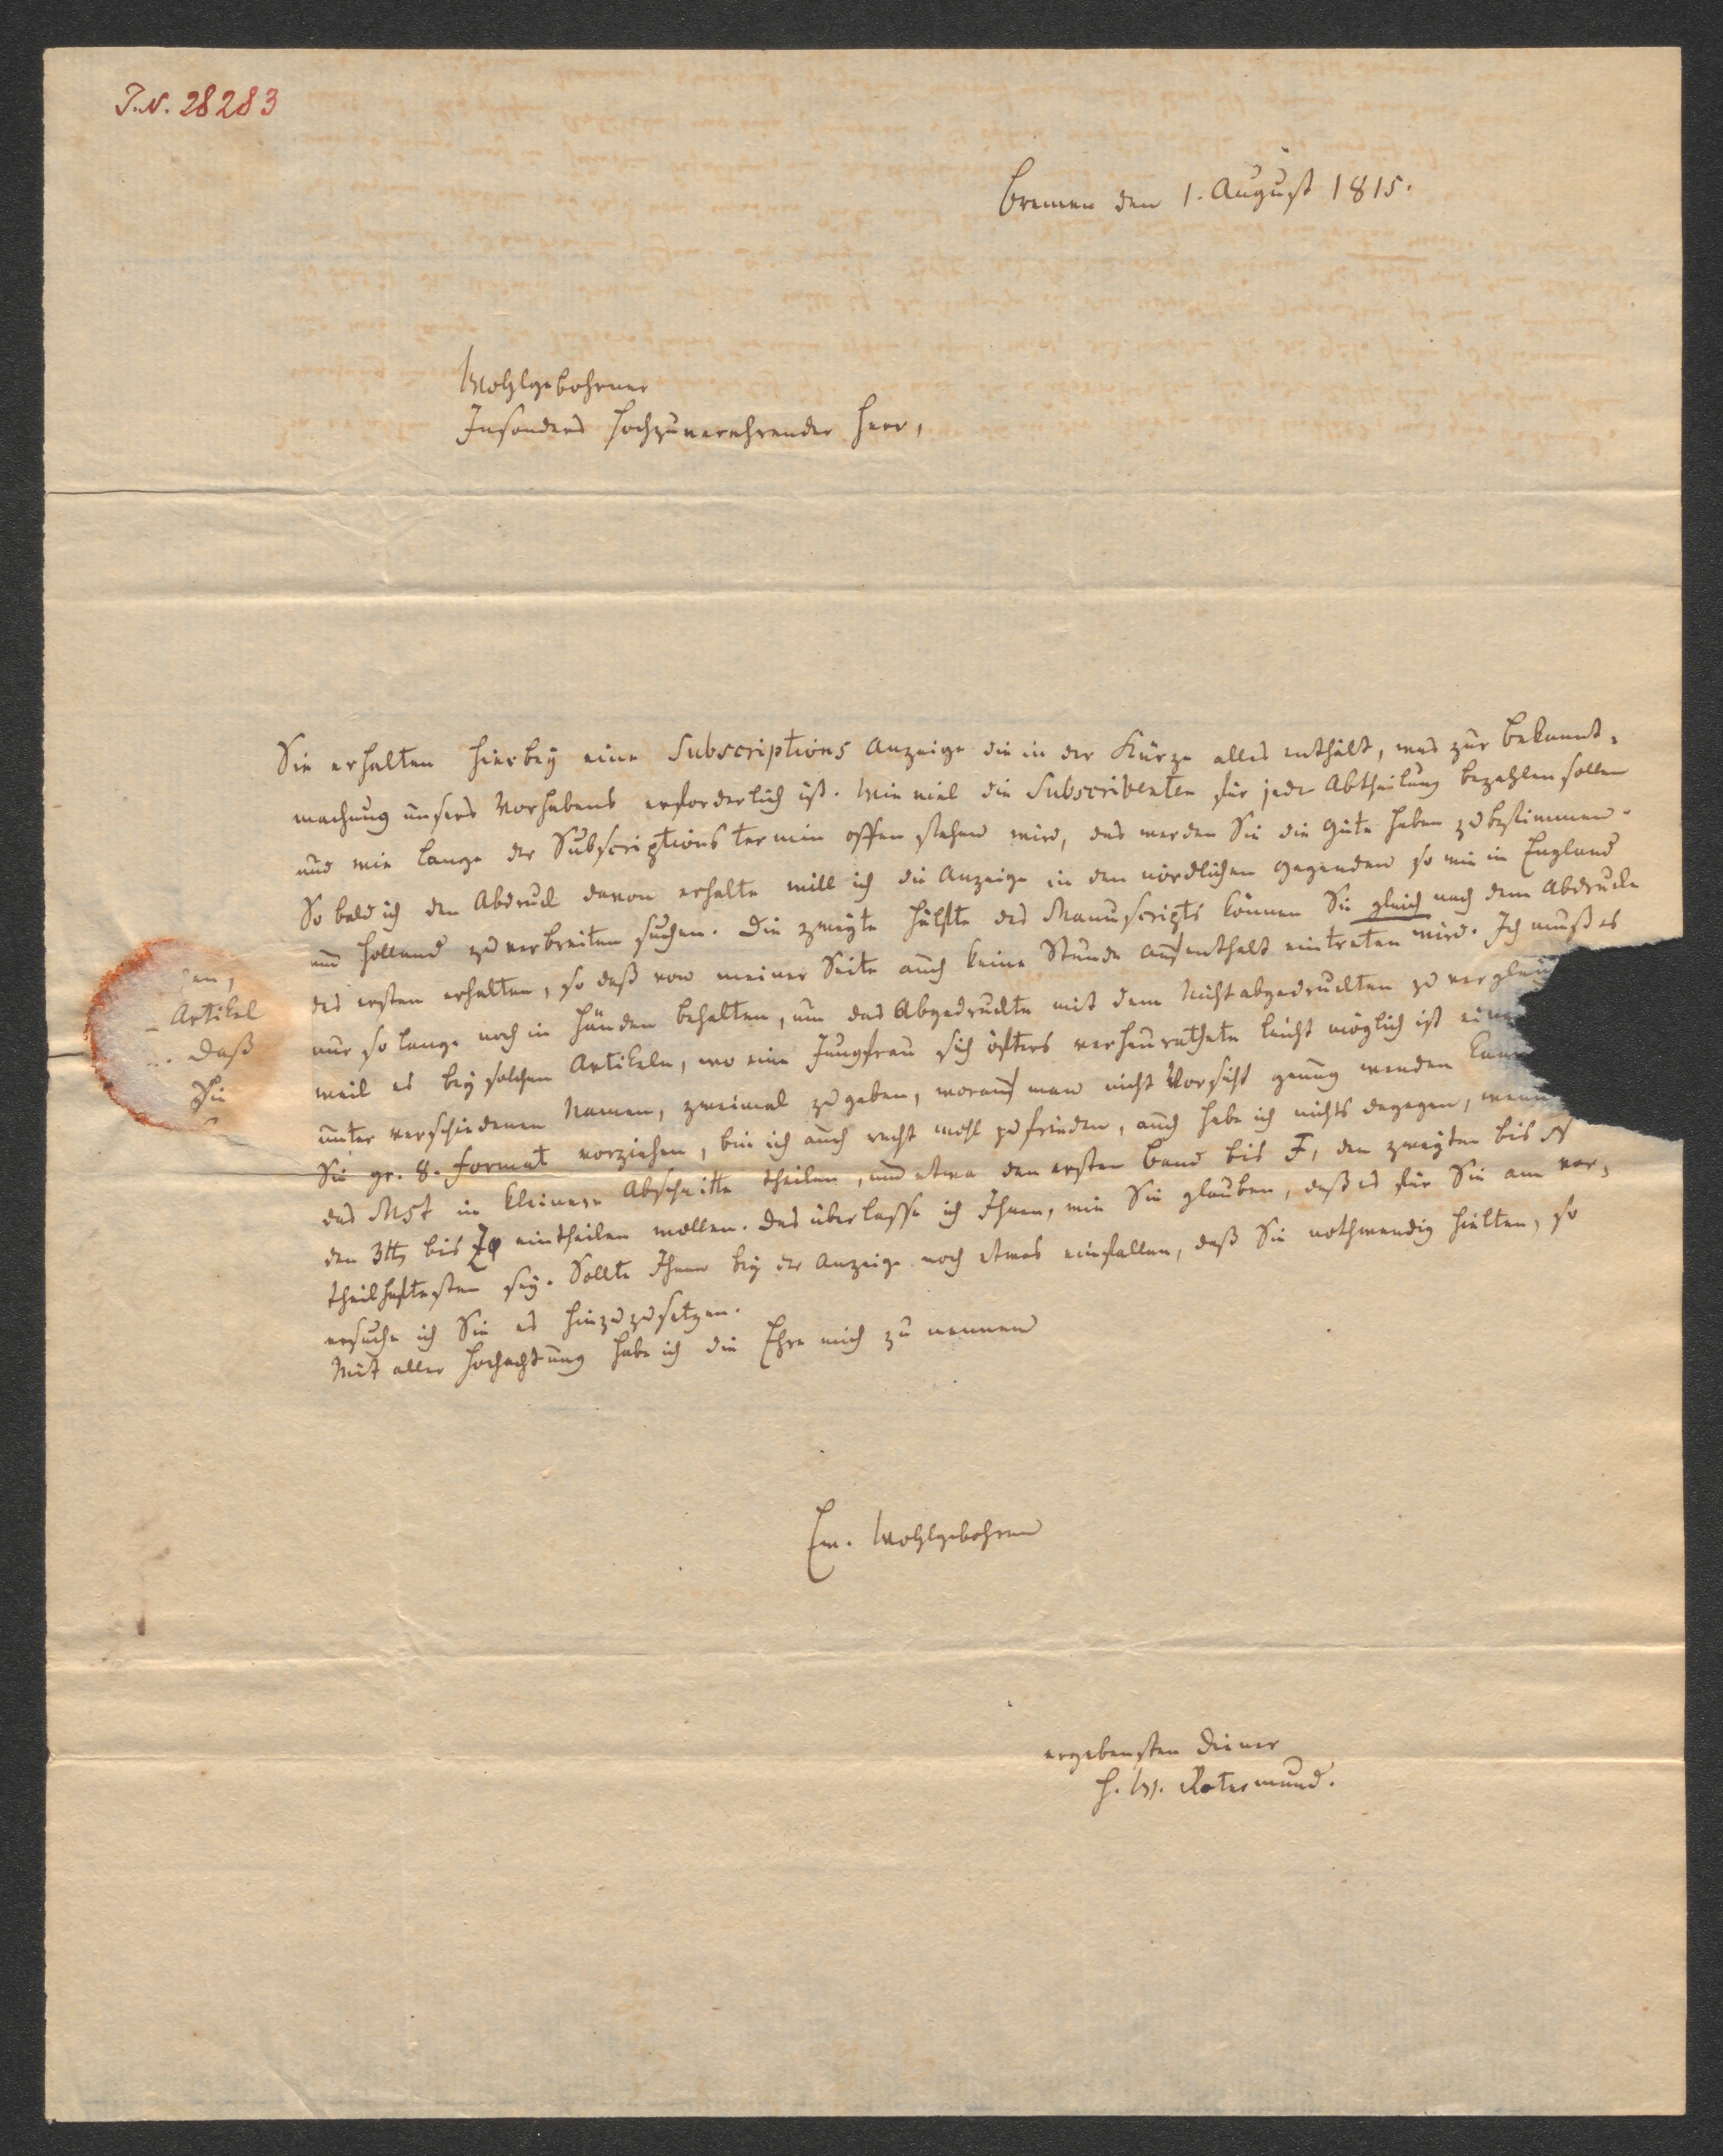 I.N. 28283
Bremen den 1. August 1815.
Wohlgebohrner
Insonders hochzuverehrender Herr,
Sie erhalten hierbey eine Subscriptions Anzeige die in der Kürze alles enthält, was zur Bekannt-
machung unsers Vorhabens erforderlich ist. Wie viel die Subscribenten für jede Abtheilung bezahlen sollen
und wie lange der Subscriptions termin offen stehen wird, das werden Sie die Güte haben zu bestimmen.
So bald ich den Abdruck davon erhalte will ich die Anzeige in den nördlichen Gegenden so wie in England
und Holland zu verbreiten suchen. Die zweyte Hälfte des Manuscripts können Sie gleich nach dem Abdrucke
des ersten erhalten, so daß von meiner Seite auch keine Stunde Aufenthalt eintreten wird. Ich muß es
nur so lange noch in Händen behalten, um das Abgedruckte mit dem Nichtabgedruckten zu vergleich
weil es bey solchen Artikeln, wo eine Jungfrau sich öfters verheurathete leicht möglich ist eine
unter verschiedenen Namen, zweimal zu geben, worauf man nicht Vorsicht genug wenden kann
Sie gr. 8. Format vorziehen, bin ich auch recht wohl zufrieden, auch habe ich nichts dagegen, wenn
das Mst in kleinere Abschnitte theilen, und etwa den ersten Band bis F, den zweyten bis N
den 3ten bis Z eintheilen wollen. Das überlasse ich Ihnen, wie Sie glauben, daß es für Sie am vor-
theilhaftesten sey. Sollte Ihnen bey der Anzeige noch etwas einfallen, daß Sie nothwendig hielten, so
ersuche ich Sie es hinzuzusetzen.
Mit aller Hochachtung habe ich die Ehre mich zu nennen
Ew. Wohlgebohren
ergebensten Diener
H. W. Rotermund.
en,
Artikel
Daß
Sie